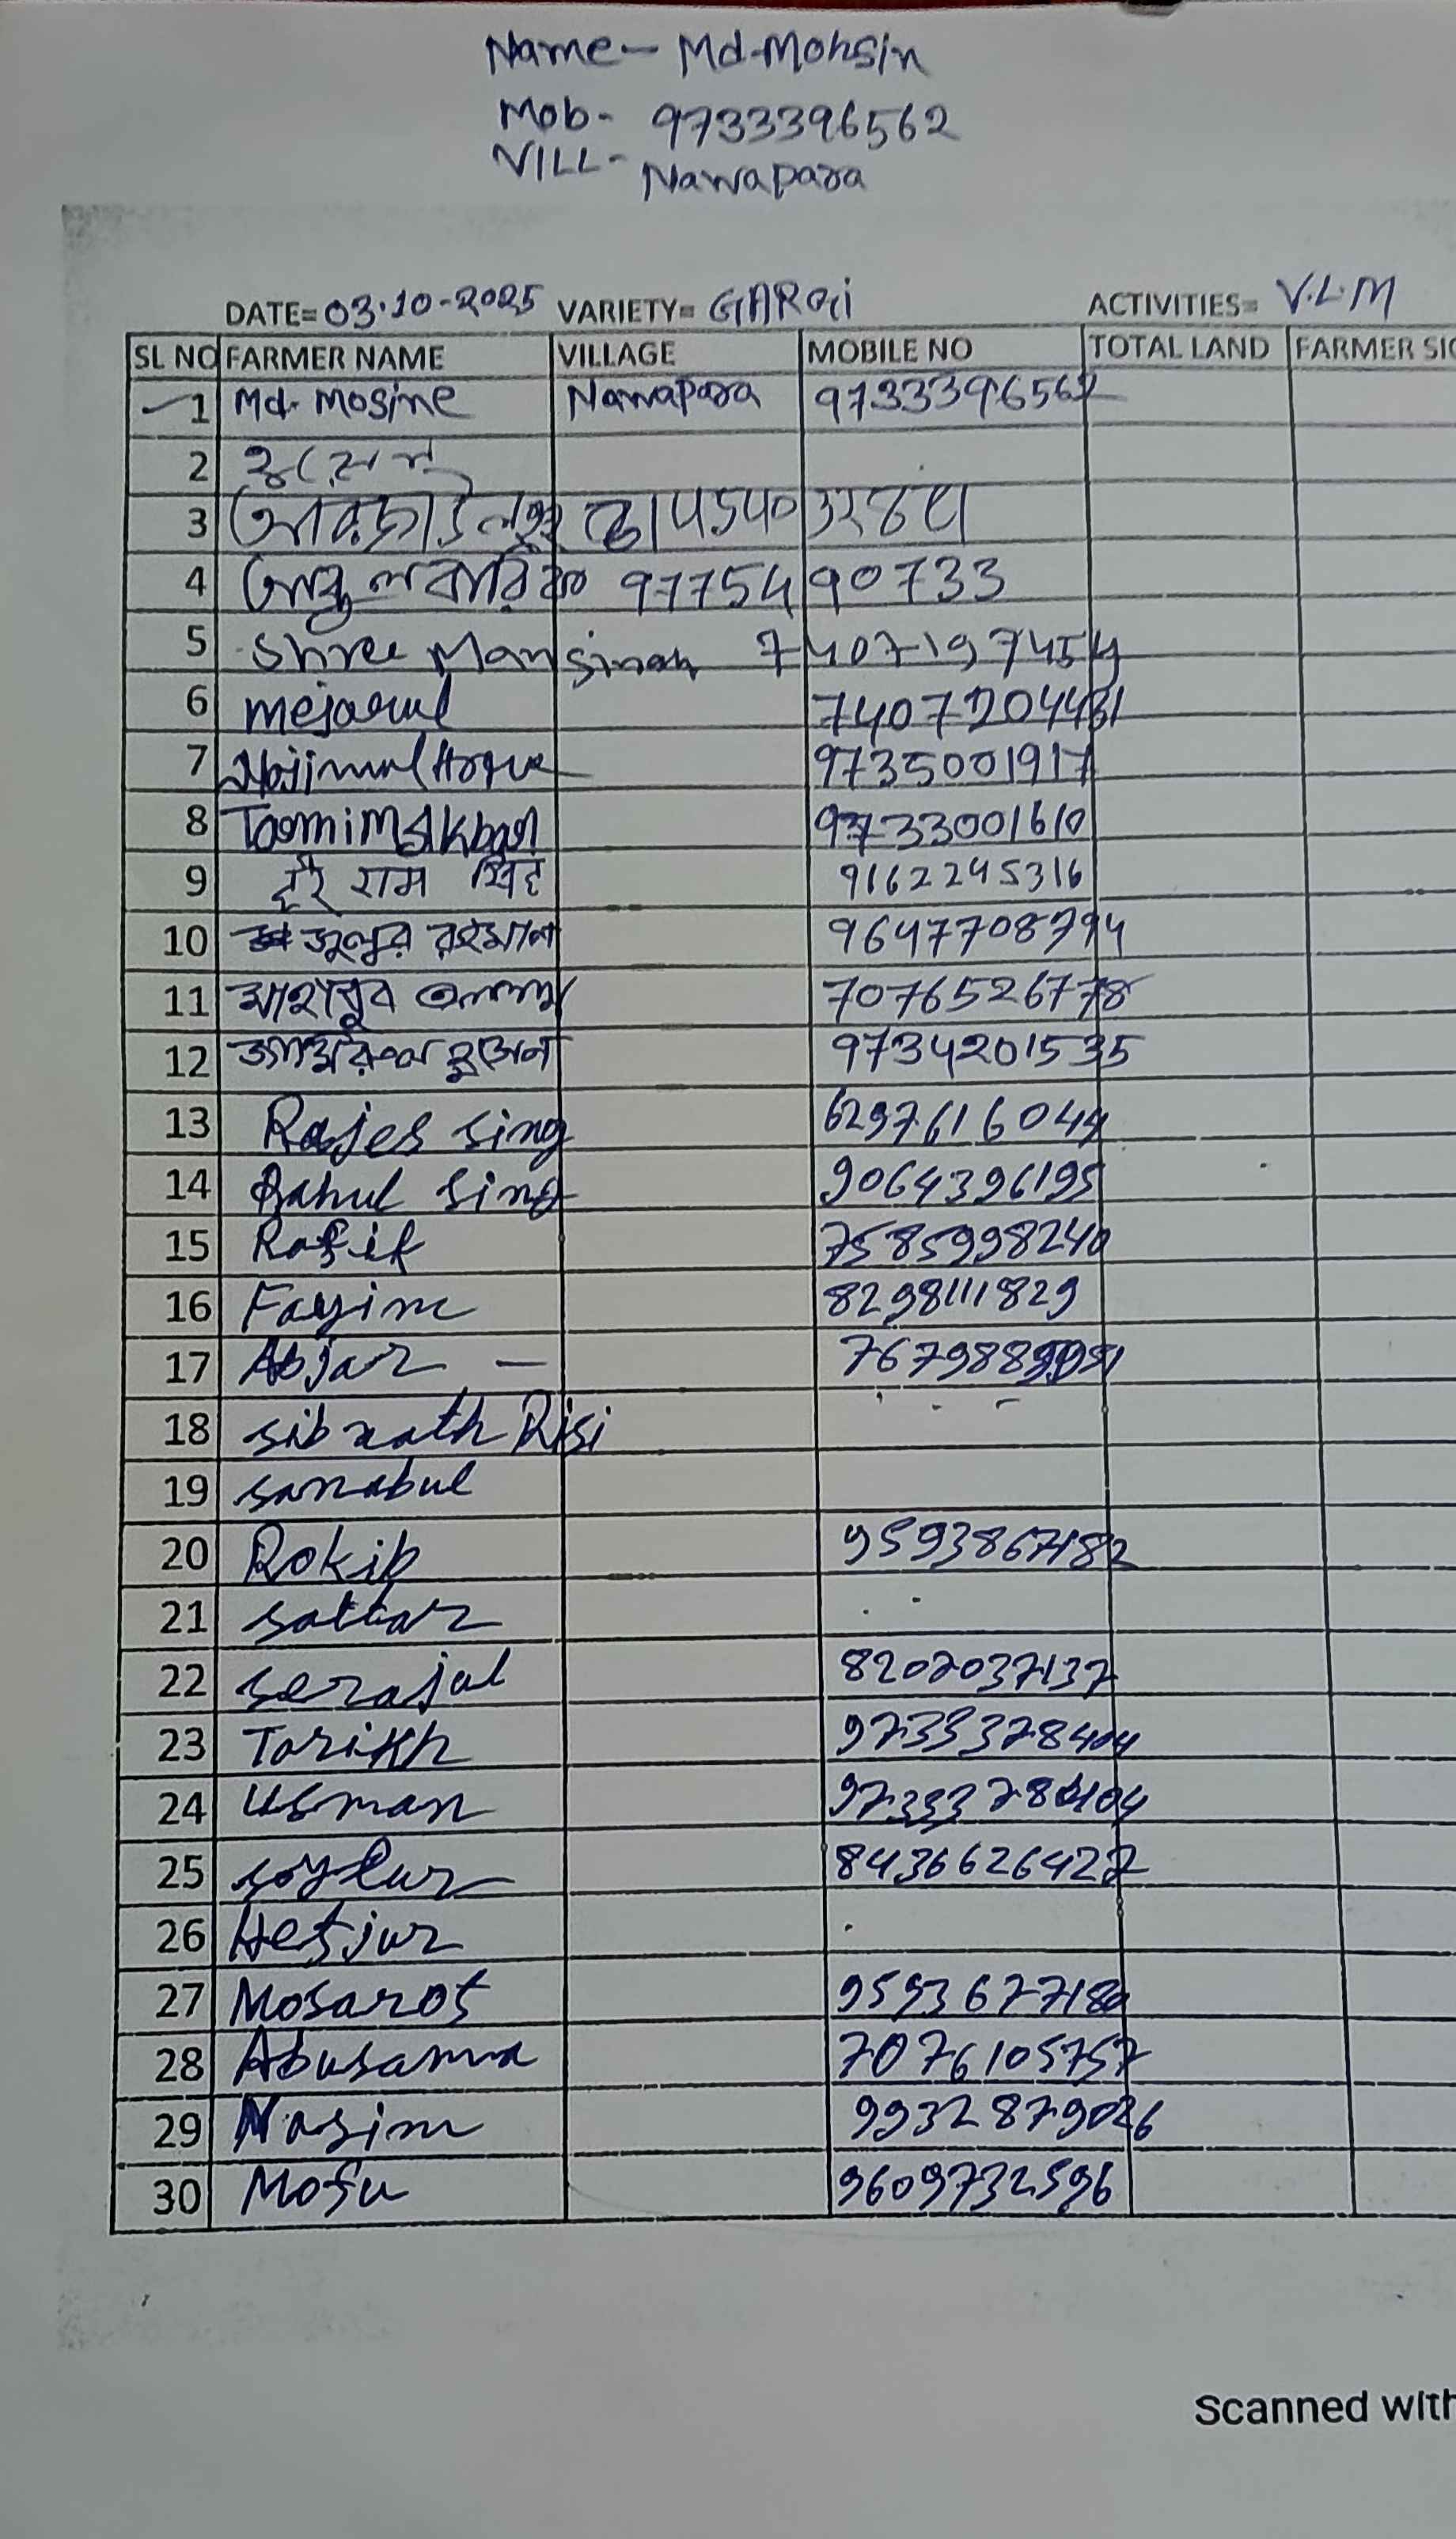 Name- Md-Mohsin
Mob- 9733396562
VILL- Nawapara
DATE= 03.10-2025 VARIETY= GARGi ACTIVITIES= V.L.M
SL NO FARMER NAME VILLAGE MOBILE NO TOTAL LAND FARMER SIG
1 Md. Mosine Nawapara 9733396562
2
3
4 9775490733
5 Shree Man 7407197454
6 mejarul
7 Najimul Hoque 9735001917
8
9 हरे राम सिंह 9162245316
10 रহমান 9647708794
11 মাহাবুব আলম 7076526778
12 9734201535
13 Rajes sing 6297616044
14 Rahul sing 9064396195
15 Rafik 7585998240
16 Fayim 8298111829
17 Abjar -
18 sibnath Risi
19 sanabul
20 Rokib 9593867182
21 sattar
22 serajul 8202037137
23 Tarikh 9733378404
24 Usman
25 soylur 8436626427
26 Hefjur
27 Mosarof 9593677180
28 Abusama 7076105757
29 Nasim 9932879026
30 Mofu 9609732596
Scanned with